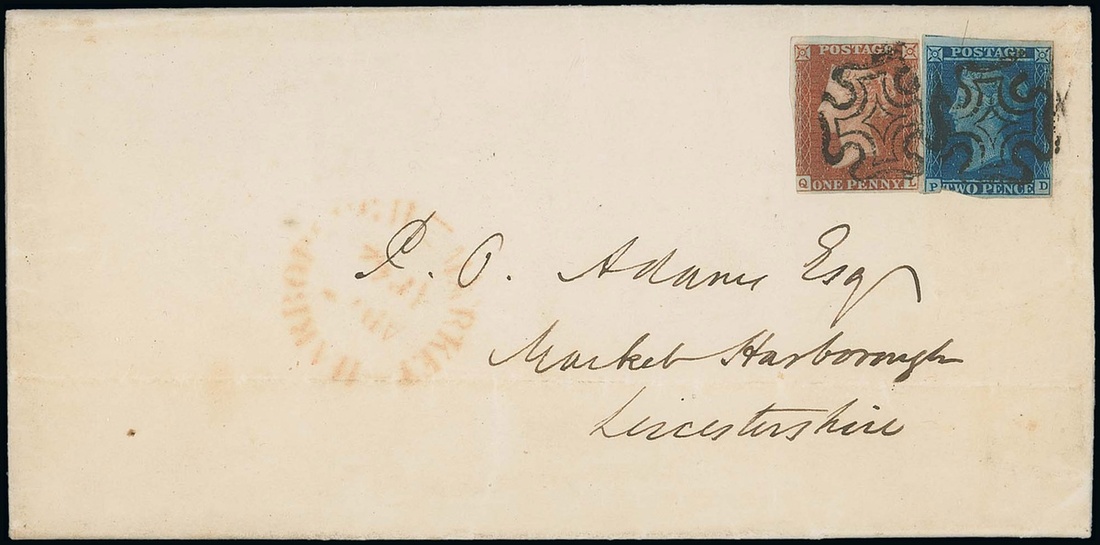 POSTAGE
ONE PENNY
Q L
POSTAGE
TWO PENCE
P D
MARKET-HARBORO
P. O. Adams Esq
Market Harborough
Leicestershire